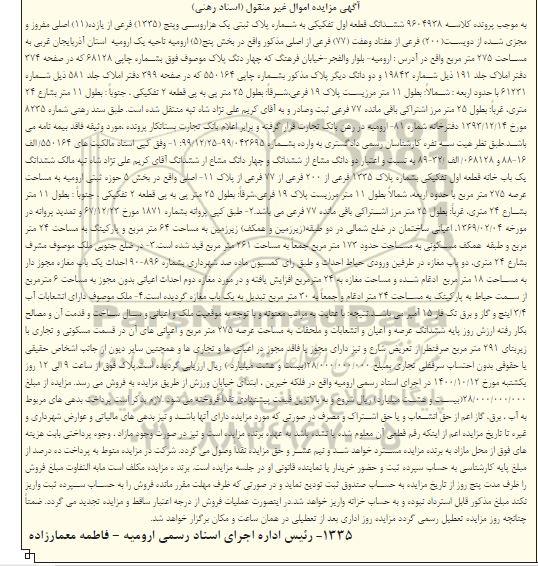 آگهی مزایده اموال غیر منقول (اسناد رهنی)
به موجب پرونده کلاسه ۹۶۰۴۹۳۸ ششدانگ قطعه اول تفکیکی به شماره پلاک ثبتی یک هزاروسی وپنج (۱۳۳۵) فرعی از یازده(۱۱) اصلی مفروز و
مجزی شده از دویست(۲۰۰) فرعی از هفتاد وهفت (۷۷) فرعی از اصلی مذکور واقع در بخش پنج(۵) ارومیه ناحیه یک ارومیه استان آذربایجان غربی به
مساحت ۲۷۵ متر مربع واقع در آدرس : ارومیه- بلوار والفجر-خیابان فرهنگ که چهار دنگ پلاک موصوف فوق بشماره چاپی ۶۸۱۲۸ که در صفحه ۳۷۴
دفتر املاک جلد ۱۹۱ ذیل شماره ۱۹۸۴۳ و دو دانگ دیگر پلاک مذکور بشماره چاپی ۵۵۰۱۶۴ که در صفحه ۳۹۹ دفتر املاک جلد ۵۸۱ ذیل شماره
۶۱۲۳۱ با حدود اربعه : شمالاً: بطول ۱۱ متر مرزیست پلاک ۱۹ فرعی،شرقاً: بطول ۲۵ متر پی به پی قطعه ۲ تفکیکی . جنوباً : بطول ۱۱ متر بشارع ۲۴
متری، غرباً: بطول ۲۵ متر مرز اشتراکی باقی مانده ۷۷ فرعی ثبت وصادر و به آقای کریم علی نژاد شاه تپه منتقل شده است. طبق سند رهنی شماره ۸۲۳۵
مورخ ۱۳۹۳/۱۲/۱۴ دفترخانه شماره ۸۱- ارومیه در رهن بانک تجارت قرار گرفته و برابر اعلام بانک تجارت بستانکار پرونده ،مورد وثیقه فاقد بیمه نامه می
باشد.طبق نظر هیت سه نفره کارشناسان رسمی دادگستری به وارده بشماره ۹۹/۰۴۳۶۹۵-۹۹/۱۲/۲۵ :۱- وفق کپی اسناد مالکیت های ۵۵۰۱۶۴/ الف
۱۶-۸۸ و ۰۶۸۱۲۸/ الف ۸۹-۳۲ به نسبت و اعتبار دو دانگ مشاع از ششدانگ و چهار دانگ مشاع از ششدانگ آقای کریم علی نژاد شاه تپه مالک ششدانگ
یک باب خانه قطعه اول تفکیکی بشماره پلاک ۱۳۳۵ فرعی از ۲۰۰ فرعی از ۷۷ فرعی از پلاک ۱۱- اصلی واقع در بخش ۵ حوزه ثبتی ارومیه به مساحت
عرصه ۲۷۵ متر مربع با حدود اربعه، شمالاً بطول ۱۱ متر مرزیست پلاک ۱۹ فرعی،شرقاً: بطول ۲۵ متر پی به پی قطعه ۲ تفکیکی ، جنوباً : بطول ۱۱ متر
بشارع ۲۴ متری، غرباً: بطول ۲۵ متر مرز اشتراکی باقی مانده ۷۷ فرعی می باشد.۲- طبق کپی پروانه بشماره ۱۸۷۱ مورخ ۶۷/۱۲/۲۳ و تمدید پروانه در
مورخه ۱۳۶۹/۰۲/۰۴، اعیانی ساختمان در ضلع شمالی در دو طبقه(زیرزمین و همکف) زیرزمین به مساحت ۶۴ متر مربع و پارکینگ به مساحت ۲۴ متر
مربع و طبقه همکف مسکونی به مساحت حدود ۱۷۳ متر مربع جمعاً به مساحت ۲۶۱ متر مربع قید شده است.۳- در ضلع جنوبی ملک موصوف مشرف
بشارع ۲۴ متری، دو باب مغازه در طرفین ورودی حیاط احداث و طبق رای کمسیون ماده صد شهرداری بشماره ۸۹۶-۹۰ احداث یک باب مغازه مجوز دار
به مساحت ۱۸ متر مربع ادغام شده و مساحت مغازه به ۲۴ مترمربع افزایش یافته و در مورد مغازه دوم احداث اعیانی بدون مجوز به مساحت ۶ مترمربع
از سمت حیاط به پارکینگ به مساحت ۲۴ متر ادغام و جمعاً به ۳۰ متر مربع تبدیل به یک باب مغازه گردیده است.۴- ملک موصوف دارای انشعابات آب
۳/۴ اینچ و گاز و برق تک فاز ۱۵ آمپر می باشد.نتیجه: با عنایت به مراتب معنونه و با توجه به موقعیت ملک و اعیانی و سال ساخت و قدمت آن و مصالح
بکار رفته ارزش روز پایه ششدانگ عرصه و اعیان و انشعابات و ملحقات به مساحت عرصه ۲۷۵ متر مربع و اعیانی های آن در قسمت مسکونی و تجاری با
زیربنای ۲۹۱ متر مربع صرفنظر از تعریض شارع و نیز دارای مجوز یا فاقد مجوز در اعیانی ها و تجاری ها و همچنین سایر دیون از جانب اشخاص حقیقی
یا حقوقی بدون احتساب سرقفلی تجاری بمبلغ ۲۸/۰۰۰/۰۰۰/۰۰۰(بیست و هشت میلیارد ) ریال ارزیابی گردیده است.پلاک فوق از ساعت ۹ الی ۱۲ روز
یکشنبه مورخ ۱۴۰۰/۱۰/۱۲ در اجرای اسناد رسمی ارومیه واقع در فلکه خیرین ، ابتدای خیابان ورزش از طریق مزایده به فروش می رسد. مزایده از مبلغ
۲۸/۰۰۰/۰۰۰/۰۰۰(بیست و هشت میلیارد) ریال شروع و به بالاترین قیمت پیشنهادی نقداً فروخته می شود. لازم بذکر است پرداخت بدهی های مربوط
به آب ، برق، گاز اعم از حق انشعاب و یا حق اشتراک و مصرف در صورتی که مورد مزایده دارای آنها باشد و نیز بدهی های مالیاتی و عوارض شهرداری و
غیره تا تاریخ مزایده اعم از اینکه رقم قطعی آن معلوم شده یا نشده باشد به عهده برنده مزایده است و نیز در صورت وجود مازاد ، وجوه پرداختی بابت هزینه
های فوق از محل مازاد به برنده مزایده مسترد خواهد شد و نیم عشر و حق مزایده نقداً وصول می گردد. شرکت در مزایده منوط به پرداخت ده درصد از
مبلغ پایه کارشناسی به حساب سپرده ثبت و حضور خریدار یا نماینده قانونی او در جلسه مزایده است. برنده مزایده مکلف است مابه التفاوت مبلغ فروش
را ظرف مدت پنج روز از تاریخ مزایده به حساب صندوق ثبت تودیع نماید و در صورتی که ظرف مهلت مقرر مانده فروش را به حساب سپرده ثبت واریز
نکند مبلغ مذکور قابل استرداد نبوده و به حساب خزانه واریز خواهد شد.در اینصورت عملیات فروش از درجه اعتبار ساقط و مزایده تجدید می گردد. ضمناً
چنانچه روز مزایده تعطیل رسمی گردد مزایده روز اداری بعد از تعطیلی در همان ساعت و مکان برگزار خواهد شد.
۱۳۳۵- رئیس اداره اجرای اسناد رسمی ارومیه – فاطمه معمارزاده